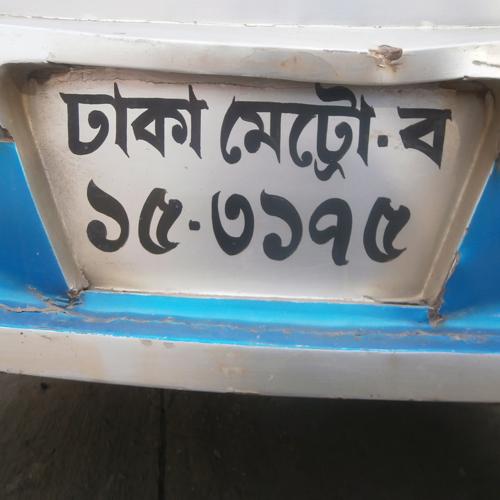 ঢাকা মেট্রো.ব
১৫-৩১৭৫